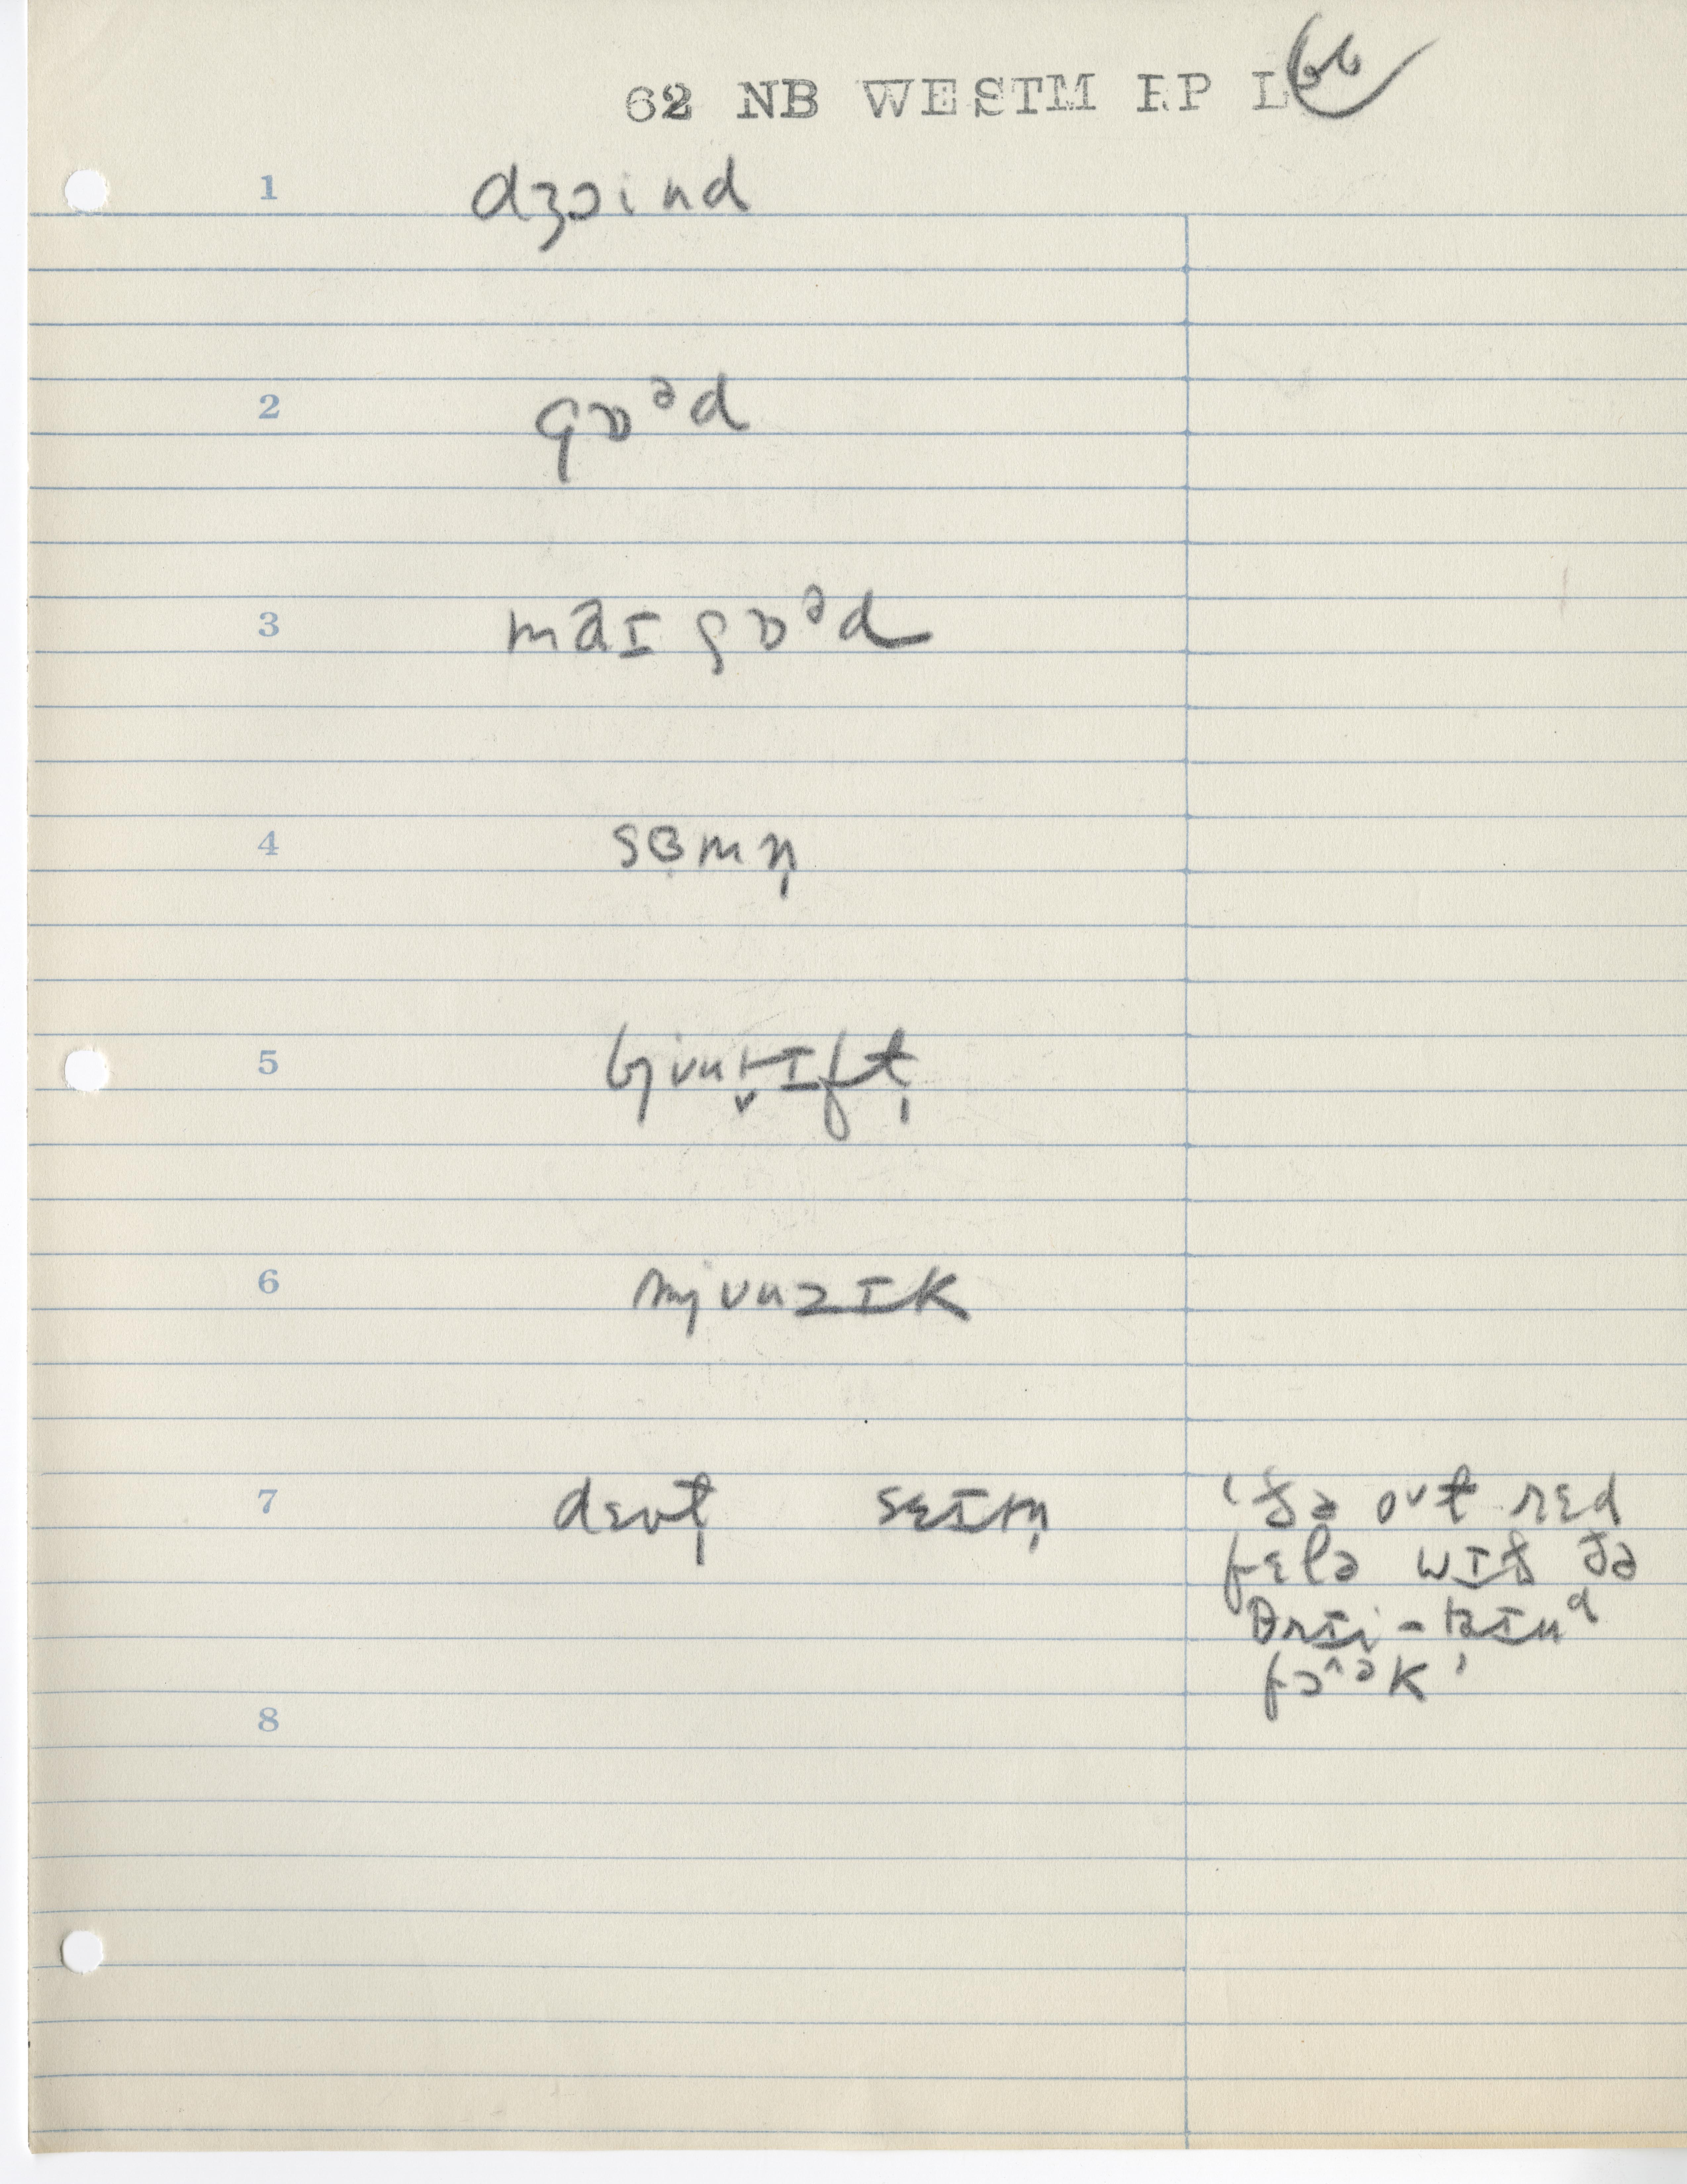 62 NB WESTM RP L 66
1 dʒɔind
2 gɒᵊd
3 maɪ gɒᵊd
4 sɞmn̩
5 bjʊut̬ɪft̩
6 mjʊuzɪk
7 dɛʊt̩ sɛɪtn̩ 'ðə oʊt rɛd
fɛlə wɪð ðə
θrɪi-taɪnᵈ
fɔ^ᵊk'
8